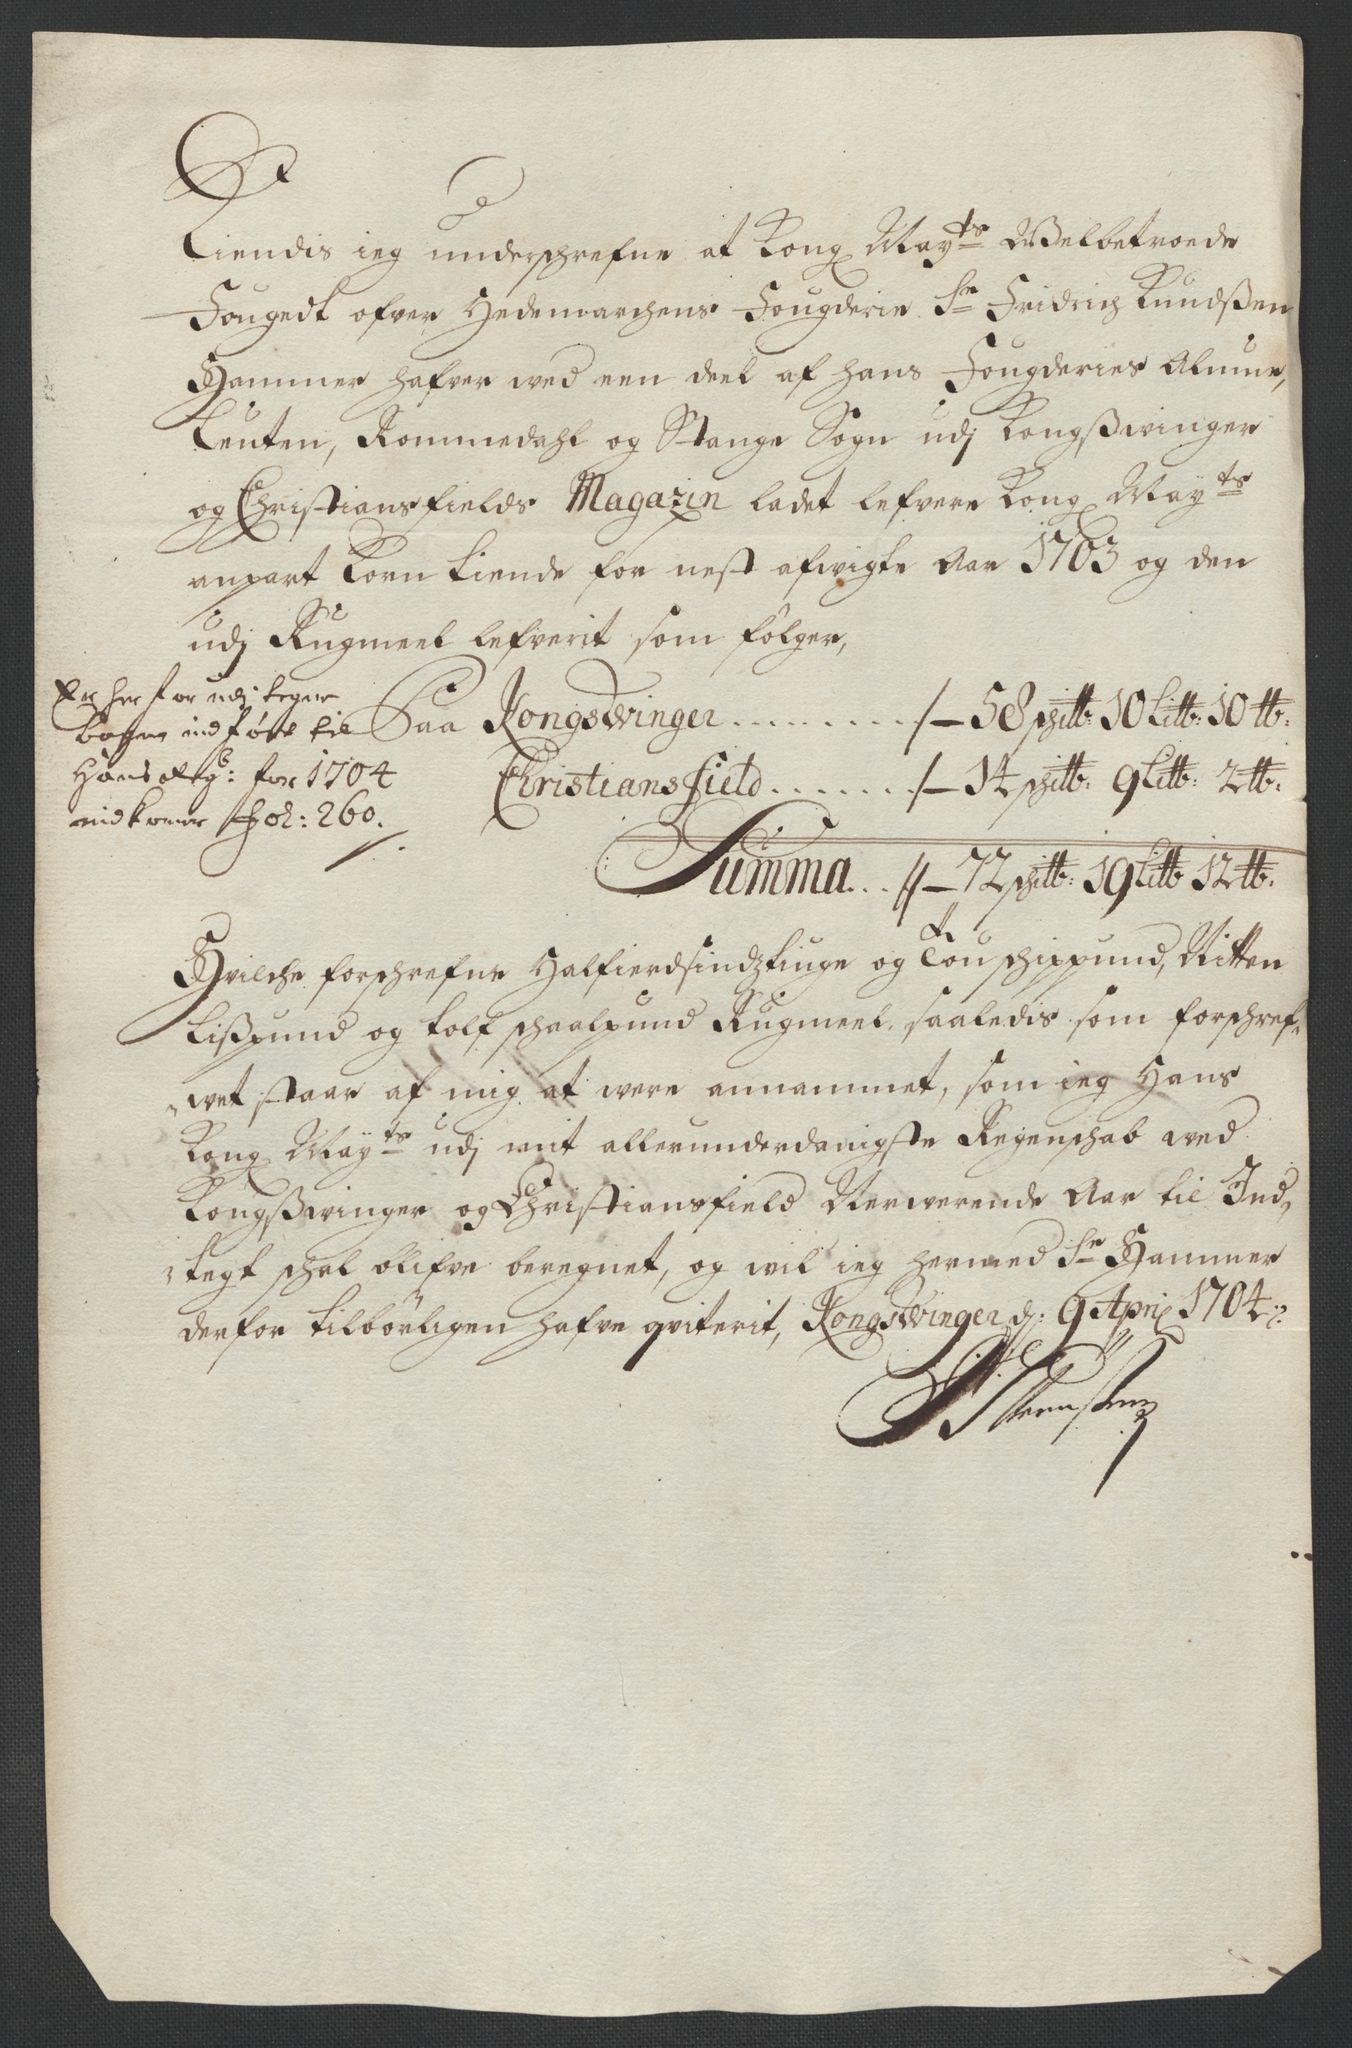 Kiendis ieg underschrefne at Kong May:ts Welbetroede
Fougedt ofver Hedemarchens Fougderie Sr Fridrich Knudsßen
Hammer hafver wed een deel af hans Fougderies Almue,
Leuten, Rommedahl og Stange Sogn udj Kongßwinger
og Christiansfields Magazin ladet lefvere Kong May:ts
anpart Korn tiende for nest afvigte Aar 1703 og den
udj Rugmeel lefverit som følger,
Er her for udj
indført til
Hans for 1704
fol: 260.
Saa Kongswinger ........ /— 58 schitt: 10 Litt: 10 tt:
Christiansfield ....... /— 14 schitt: 9 Litt: 2 tt:
Summa... //— 72 schitt: 19 Litt 12 tt:
Hvilche forschrefne Halfierdsindztiuge og Tou schippund, Nitten
Lißpund og tolf schaalpund Rugmeel, saaledis som forschref-
wet staar af mig at were annammet, som ieg Hans
Kong May:ts udj mit allerunderdanigste Regenschab wed
Kongßwinger og Christiansfield Nerwerende Aar til Ind-
tegt schal blifve beregnet, og wil ieg hermed Sr Hammer
derfor tilbörligen hafve qviterit, Kongswinger dj: 9 April 1704